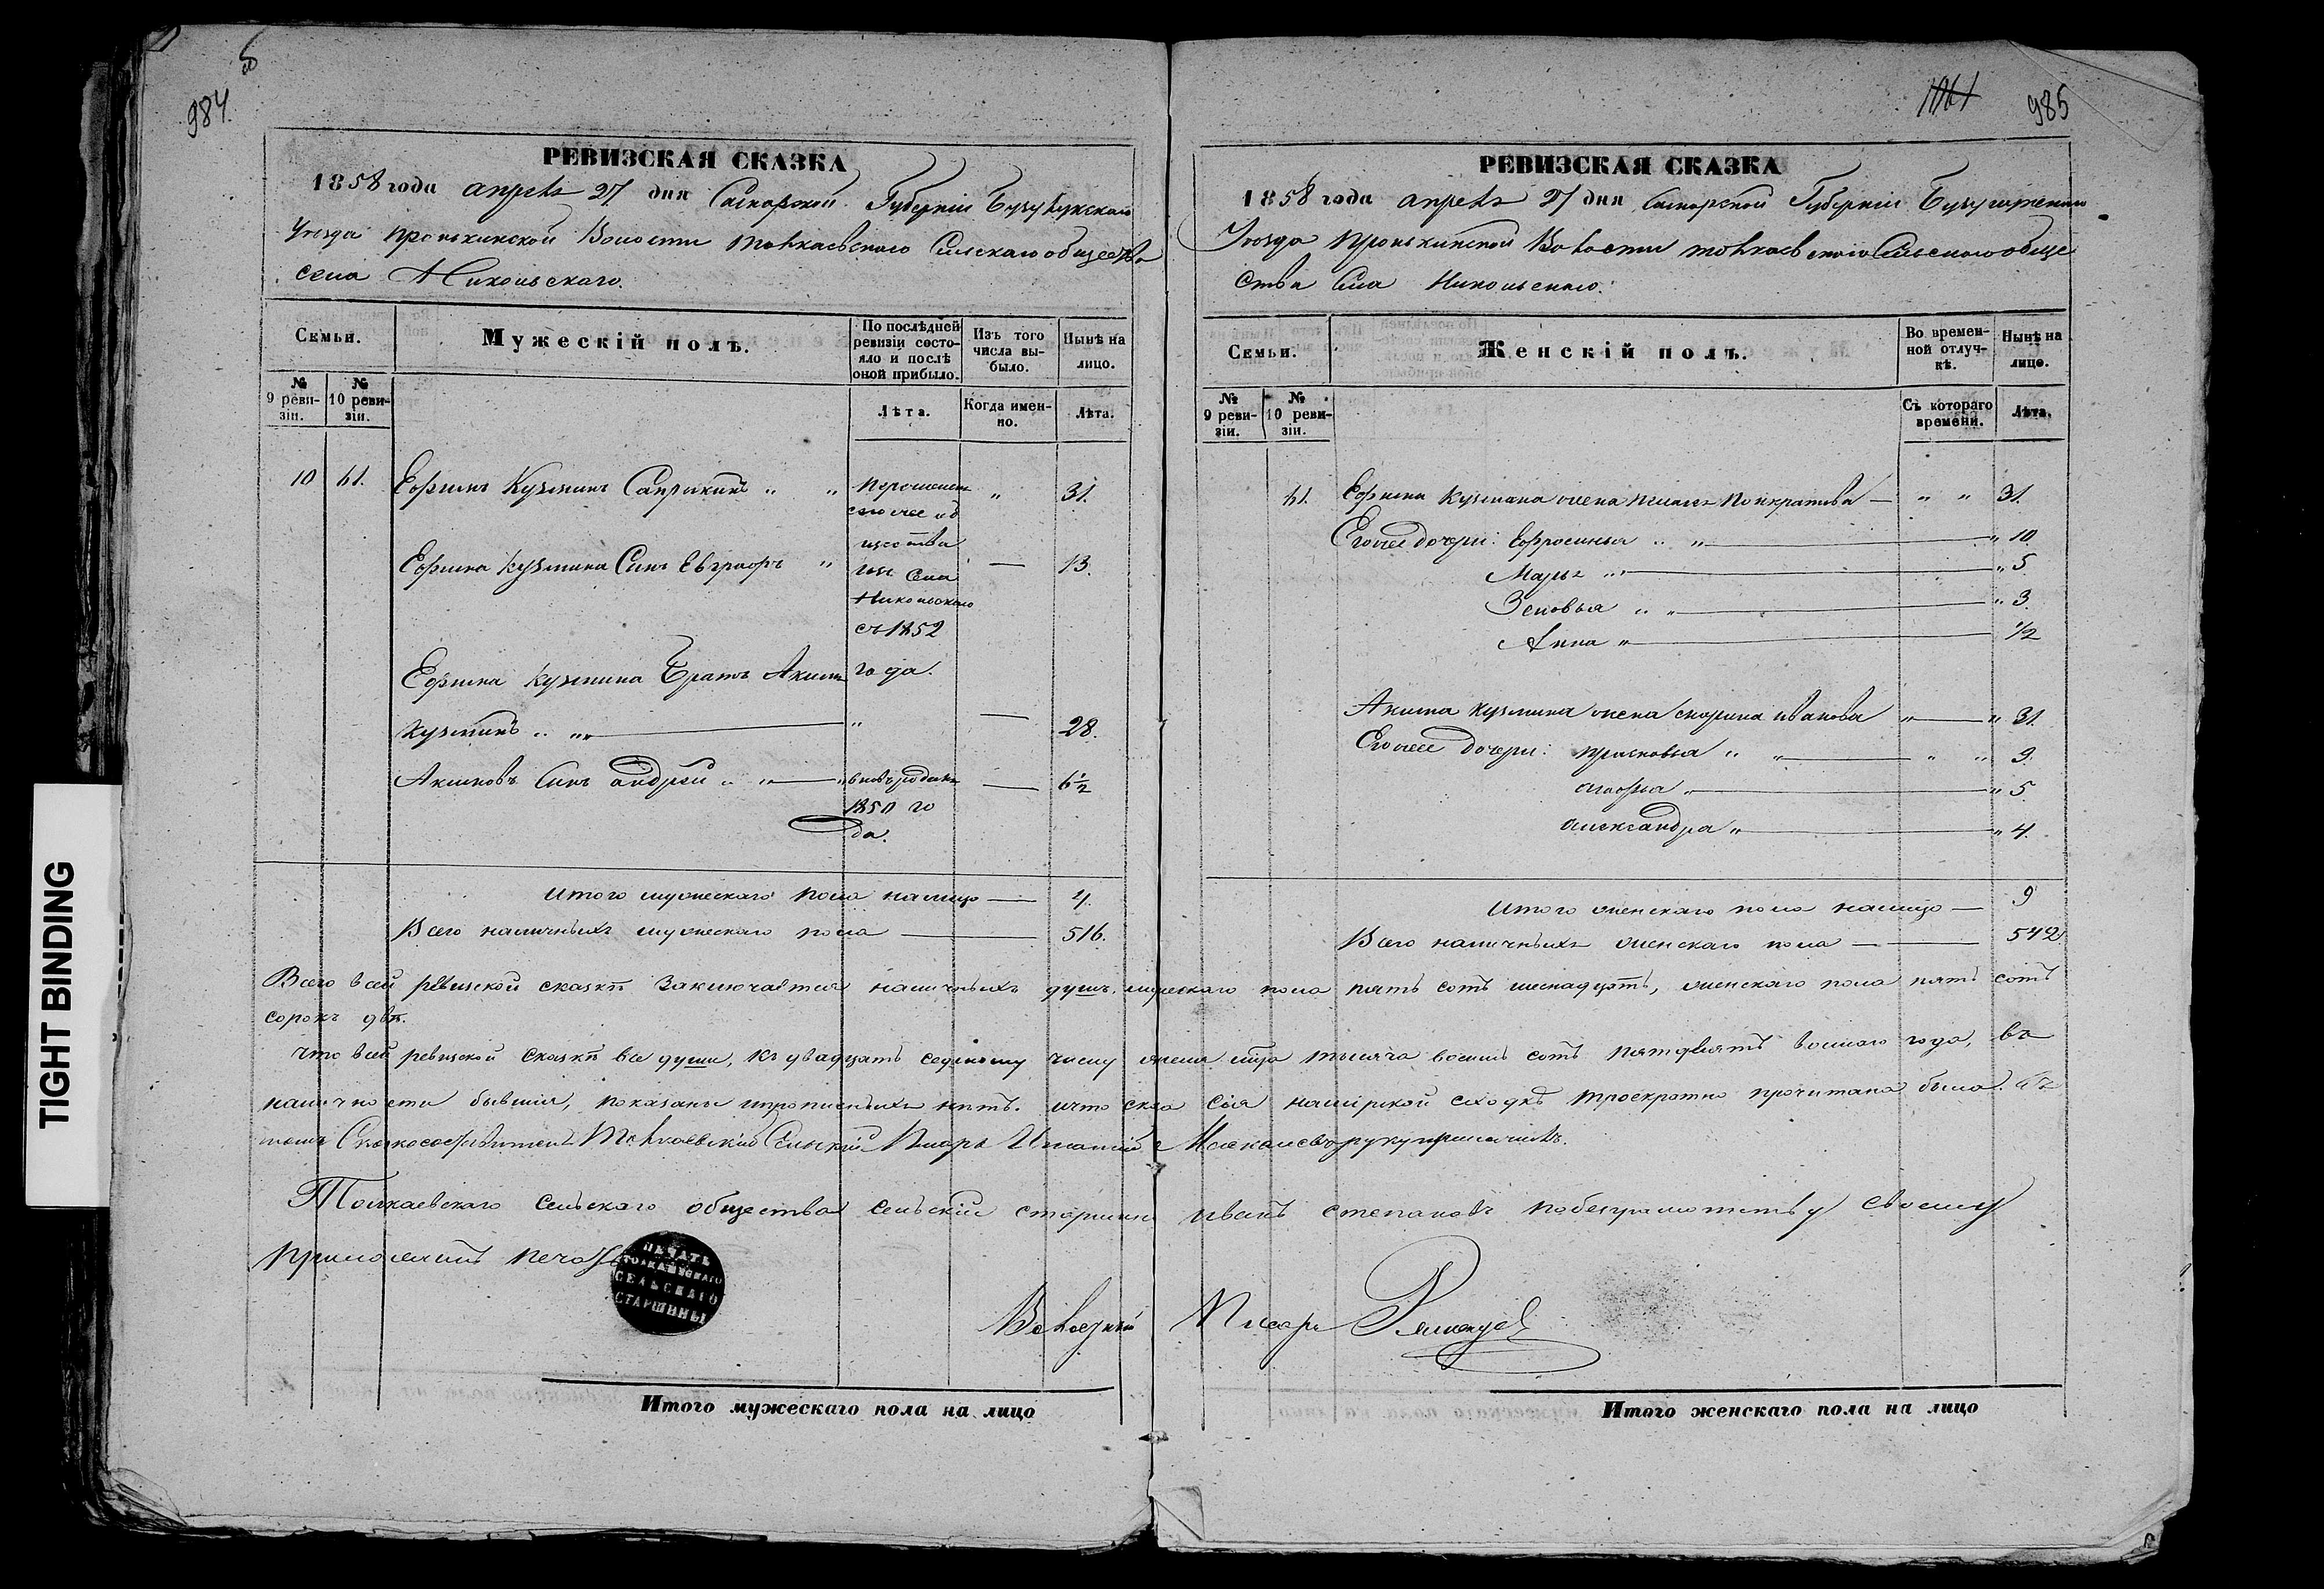 984.
РЕВИЗСКАЯ СКАЗКА
1858 года апреля 27 дня Самарской Губерніи Бузулукскаго
Уезда Пронькинской Волости Толкаевскаго Сельскаго общества
села Никольскаго.
Семьи.
Мужескій полъ.
По послѣдней ревизіи состояло и послѣ оной прибыло.
Изъ того числа выбыло.
Нынѣ на лицо.
№ 9 ревизіи.
№ 10 ревизіи.
Лѣта.
Когда именно.
Лѣта.
10 61. Ефимъ Кузминъ Сапрыкинъ " " " 31.
Ефима Кузмина Сынъ Евграфъ " — 13.
села
Никольскаго
съ 1852
года.
Ефима Кузмина Братъ Акимъ
Кузминъ " " — 28.
Акимовъ Сынъ андрей " " — 6½
1850 го
да.
итого мужескаго пола налицо — 4.
Всего наличныхъ мужескаго пола — 516.
1061 985
РЕВИЗСКАЯ СКАЗКА
1858 года апреля 27 дня Самарской Губерніи Бузулукскаго
Уезда Пронькинской Волости Толкаевскаго Сельскаго обще
ства Села Никольскаго.
Семьи.
Женскій полъ.
Во временной отлучкѣ.
Нынѣ на лицо.
№ 9 ревизіи.
№ 10 ревизіи.
Съ котораго времени.
Лѣта.
61. Ефима Кузмина жена Понкратова — " " 31.
Егоже дочери: Ефросинья " " — " 10
Марья " — " 5
Зеновья " " — " 3.
Анна " — ½
Акима Кузмина жена иванова " — " 31.
Егоже дочери: прасковья " " — " " 9.
агафья " — " 5.
александра " — " 4.
итого женскаго пола налицо — 9
Всего наличныхъ женскаго пола — 542
Всего всей ревизской сказкѣ заключается наличныхъ душъ мужескаго пола пять сотъ шеснадцать, женскаго пола пять сотъ
сорокъ двѣ.
что всей ревизской сказкѣ все души, къ двадцать седьмому числу тысяча восемь сотъ пятдесятъ восмаго года, въ
наличности бывшія, показаны и прописныхъ нѣтъ. и что сказка сія на мірской сходкѣ троекратно прочитана была. въ
томъ Сказкосоставитель Толкаевскій Сельскій Писарь руку приложилъ.
Толкаевскаго сельскаго общества сельскій старшина иванъ степановъ по безграмотству своему
приложилъ печать
ПЕЧАТЬ
ТОЛКАЕВСКАГО
СЕЛЬСКАГО
СТАРШИНЫ
Волостный Писарь
Итого мужескаго пола на лицо
Итого женскаго пола на лицо
TIGHT BINDING